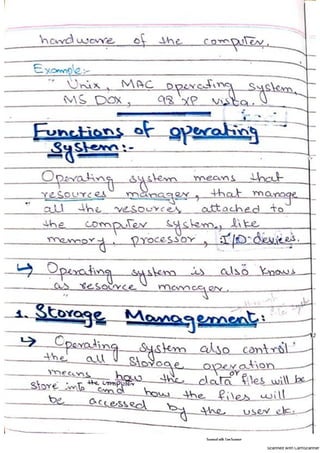 hardware of the computer.
Example:-
Unix, MAC operating system,
MS DOX, 98 XP vista.
Functions of operating
System:-
Operating system means that
resources manager, that manage
all the resources attached to
the computer system, like
memory, processor, I/O devices.
↳ Operating system is also knows
as resource manager.
1. Storage Management:
↳ Operating system also control
the all storage operation
means how the data or files will be
store into the computer and how the files will
be accessed by the user etc.
Scanned with CamScanner
Scanned with CamScanner